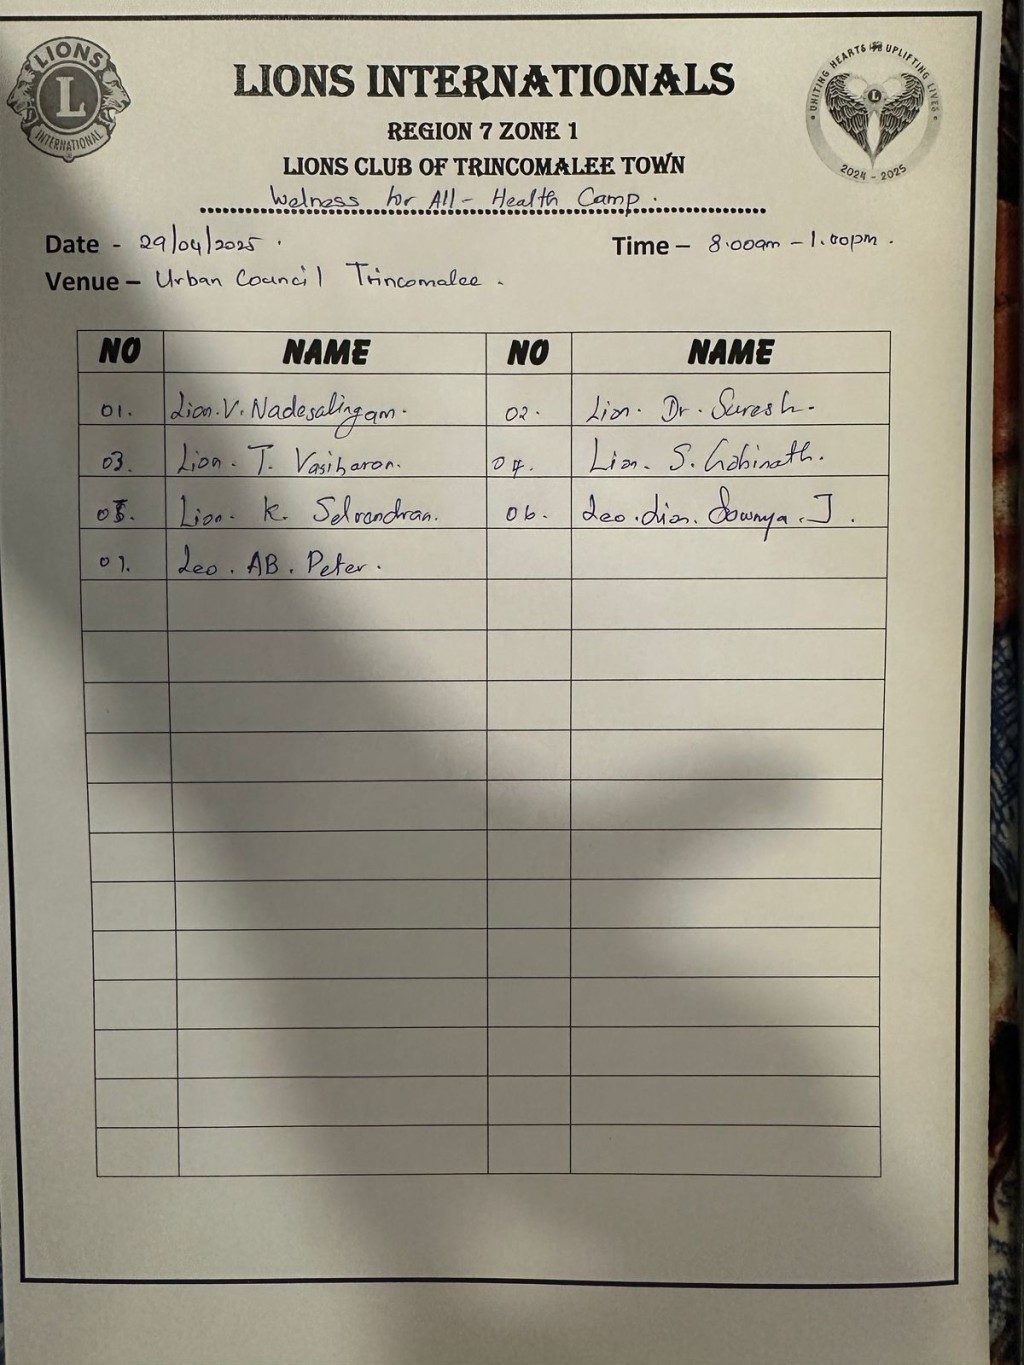 LIONS
L
INTERNATIONAL
LIONS INTERNATIONALS
UNITING HEARTS UPLIFTING LIVES
L
2024 - 2025
REGION 7 ZONE 1
LIONS CLUB OF TRINCOMALEE TOWN
Welness for All - Health Camp.
Date - 29/04/2025. Time – 8.00am - 1.00pm.
Venue – Urban Council Trincomalee.
NO NAME NO NAME
01. Lion. V. Nadesalingam. 02. Lion. Dr. Suresh.
03. Lion. T. Vasiharon. 04. Lion. S. Gobinath.
05. Lion. K. Selvandran. 06. Leo. Lion. Sowmya. J.
07. Leo. AB. Peter.